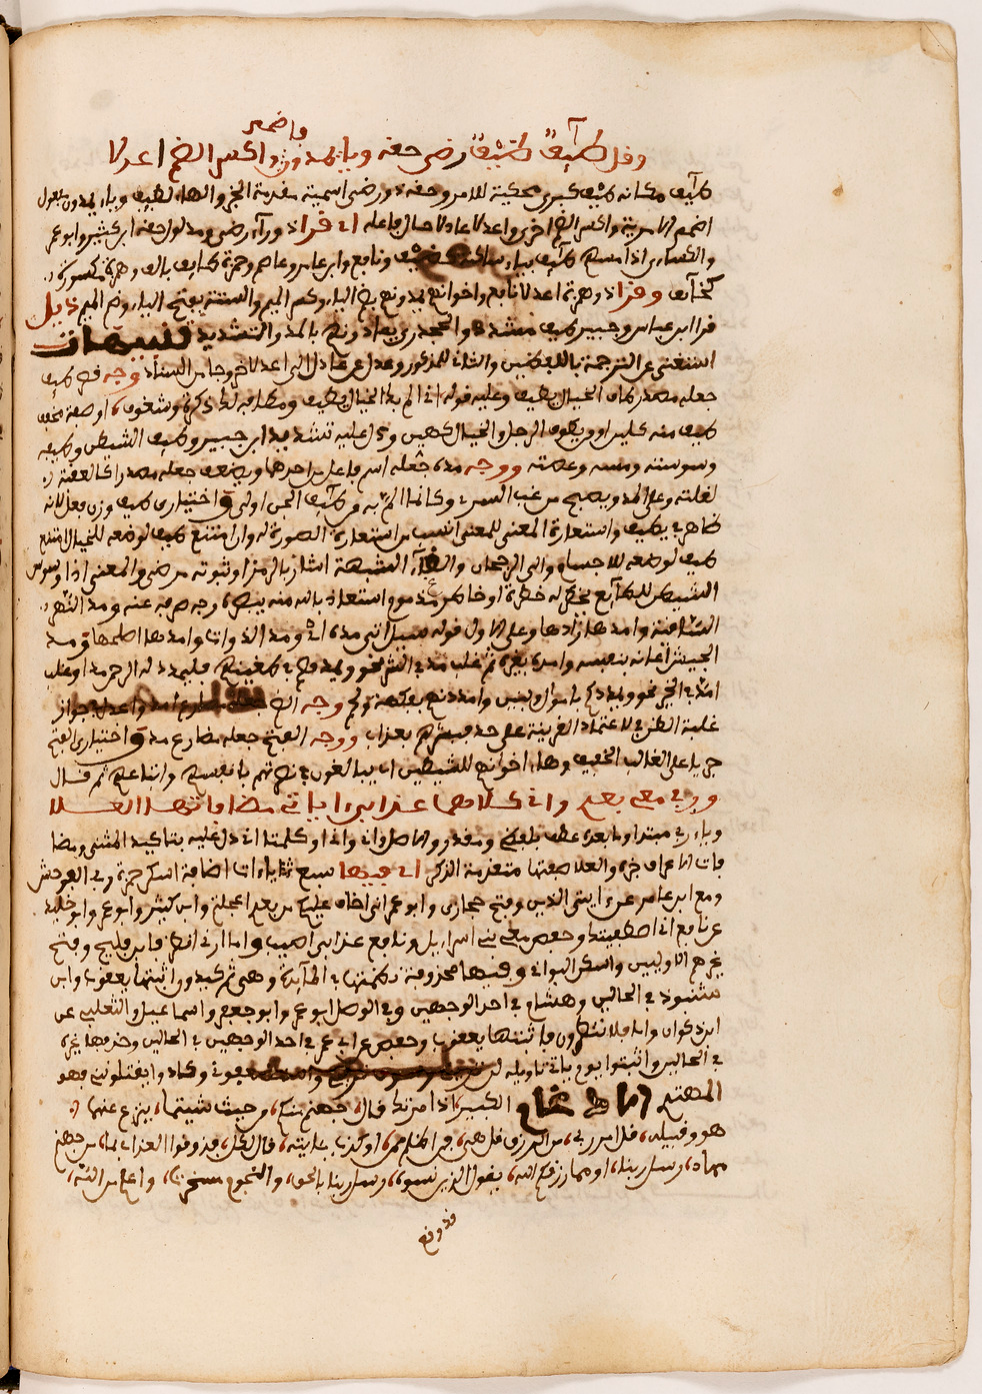 فاضمم
وقل طائف طيف رضى حقه ويا يمدون واكسر الضم اعدلا
طائف مكانه طيف كبرى محكية للامر وحقه ورضى اسمية مقدمة الخبر والهاء لطيف وياء يمدون مفعول
اضمم الامرية واكسر الضم اخرى واعدلا عادلا حال فاعله اي قرا ذو راء رضى ومدلول حقه ابن كثير وابو عمرو
والكساءي اذا مسهم طيف بياء ساكنة ونافع وابن عامر وعاصم وحمزة طائف بالف وهمزة مكسورة
كخائف وقرا ذو همزة اعدلا نافع واخوانهم يمدونهم بضم الياء وكسر الميم والستة بفتح الياء وضم الميم ذيل
قرا ابن عباس وجبير طيف مشددا والجحدري يمادونهم بالمد والتشديد تنبيهات
استغنى عن الترجمة باللفظين والثاني للمذكور وعدل عن عادل الى اعدلا خروجا من السناد وجه قصر طيف
جعله مصدر طاف الخيال يطيف وعليه قوله انى الم بك الخيال يطيف ومطافه لك ذكرة وشغوف او صفة مخفف
طيف منه كلين او ويطوف الرجل والخيال كهين ودل عليه تشديد ابن جبير وطيف الشيطن وطيفه
وسوسته ومسه وعصمته ووجه مده جعله اسم فاعل من احدهما ويضعف جعله مصدرا كالعفة
لقلته وعلى المد ويصبح من غب السرى وكانما الم به من طائف الجن اولق واختياري طيف وزن فعل لانه
ظاهر في يطيف واستعارة المعنى للمعنى انسب من استعارة الصورة له وان امتنع طيف لوضعه للخيال امتنع
طيف لوضعه للاجسام والى الرجحان والقراء المشبهة اشار بالرمز او ثبوته مرضي والمعنى اذا وسوس
الشيطن للطائع تحكم له خطرة او خاطر مذموم واستعاذ بالله منه ببصره وجه صرفه عنه ومد النهر
الساقية وامدها زادها وعلى الاول قوله سيل اتي مده اتي ومد الدواة وامدها اصلحها ومد
الجيش اعانه بنفسه وامده بغيره ثم غلب مد في الشر نحو ويمدهم في طغينهم فليمدد له الرحمن مدا وغلب
امد في الخير نحو ويمددكم باموال وبنين وامددنهم بفكهة ولحم وجه الضم جعله مضارع امد واعدل لجواز
غلبة الطرفين لاعتماد القرينة على حد فبشرهم بعذاب ووجه الفتح جعله مضارع مد واختياري الفتح
جريا على الغالب الخفيف وهاء اخوانهم للشيطين اي يبالغون في نصرتهم بانفسهم واتباعهم ثم قال
وربي معي بعدي واني كلاهما عذابي اياتي مضافاتها العلا
وياء ربي مبتدا وما بعده عطف بلفظه ومقدر والاصل واني واني او كلمتا اني دل عليه بتاكيد المثنى ومضا
فات الاعراف خبره والعلا صفتها متقدمة الذكر اي فيها سبع ثايات اضافة اسكن حمزة ربي الفوحش
ومع ابن عامر عن ءايتي الذين وفتح حجازي وابو عمرو اني اخاف عليكم من بعدي اعجلتم وابن كثير وابو عمرو وابو خليد
عن نافع اني اصطفيتك وحفص معي بني اسراءيل ونافع عذابي اصيب واما ارني انظر فابن فليح وفتح
غيرهم الاوليين واسكن البواقي وفيها محزوفة ذكمتها في المايدة وهي ثم كيدون اثبتها يعقوب وابن
شنبوذ في الحالين وهشام في احد الوجهين وفي الوصل ابو عمرو وابو جعفر واسماعيل والثعلبي عن
ابن ذكوان واما فلا تنظرون فاثبتها يعقوب وحفص عن ابي عمر في احد الوجهين في الحالين وحذفها غيره
في الحالين واثبتوا يوم ياتي تاويله لن يعوني وكادوا يقتلونني فهو
المهتدي ادغام الكبير اذ امرتك قال جهنم منكم من حيث شيتما ينزع عنهما
هو وقبيله قل امر ربي من الرزق قل هي فمن اظلم ممن او كذب بئايته قال لكل فذوقوا العذاب بما من جهنم
مهاد رسل ربنا او مما رزقكم الله يقول الذين نسوه رسل ربنا بالحق والنجوم مسخرت واعلم من الله
قد وقع